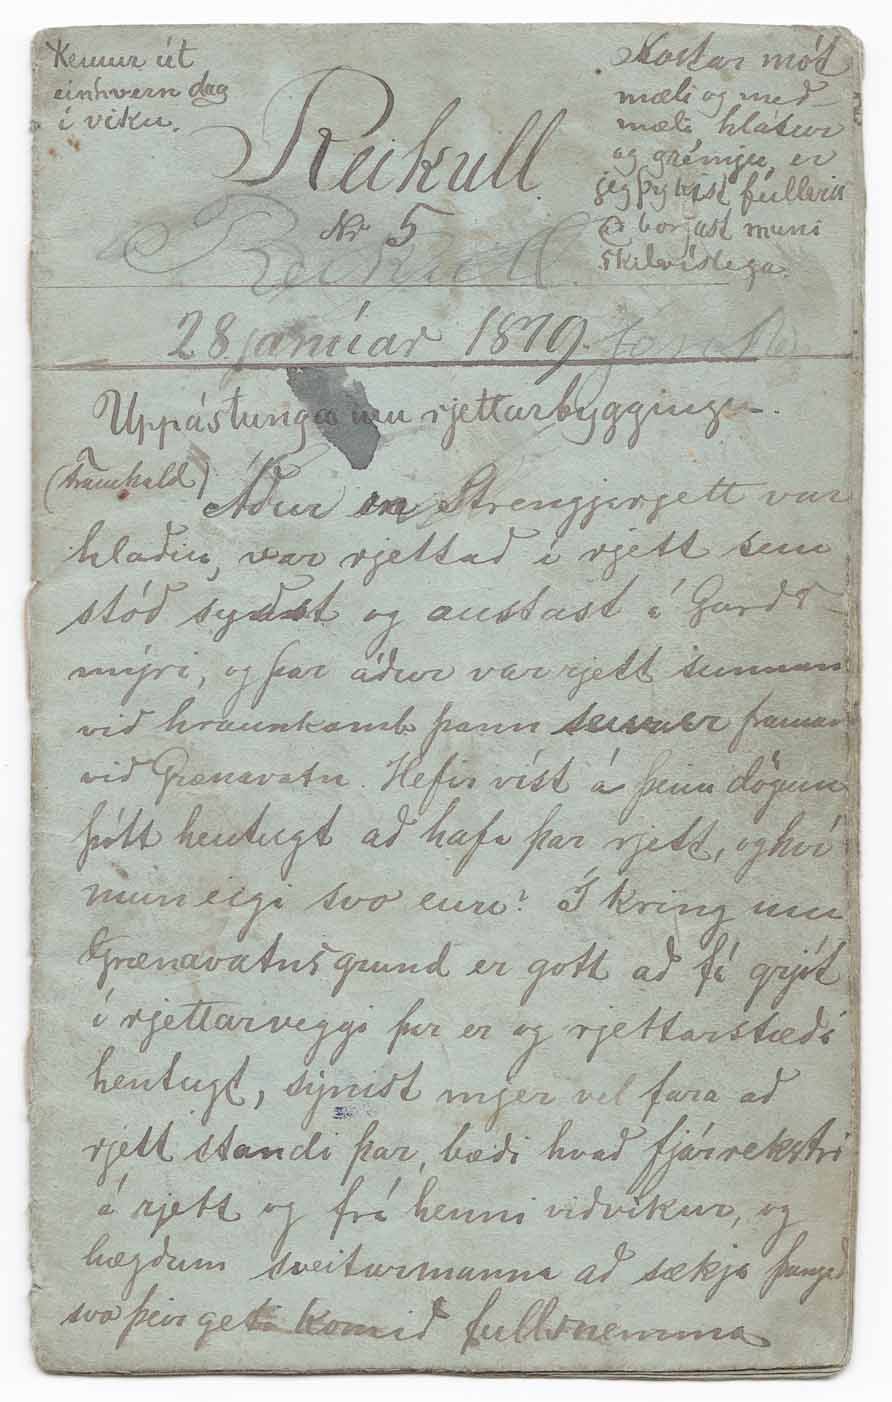 Kemur út
einhvern dag
í viku.
Kostar mót
mæli og með
mæli hlátur
og gremju, er
jeg þykist fullviss
borgast muni
skilvíslega.
Reikull
Nr 5
Reikull
28 janúar 1879.
Uppástunga um rjettarbyggingu.
(Framhald)
Áður en Strengjarjett var
hlaðin, var rjettað í rjett sem
stóð syðst og austast í Garðs-
mýri, og þar áður var rjett sunnan
við hraunkamb þann framan
við Grænavatn. Hefir víst á þeim dögum
þótt hentugt að hafa þar rjett, og því
mun eigi svo enn? Í kring um
Grænavatnsgrund er gott að fá grjót
í rjettarveggi þar er og rjettarstæði
hentugt, sýnist mjer vel fara að
rjett standi þar, bæði hvað fjárrekstri
á rjett og frá henni viðvíkur, og
hægðum sveitarmanna að sækja þangað
svo þeir geti komið fullsnemma